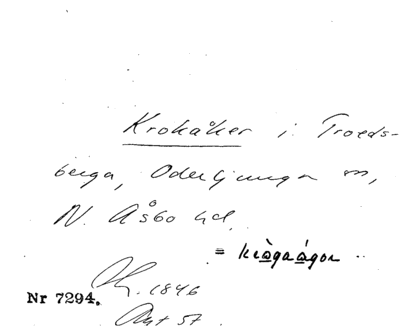 Krokåker i Troeds-
berga, Oderljunga sn,
N. Åsbo hd.
= kròga
1846
Nr 7294.
57.